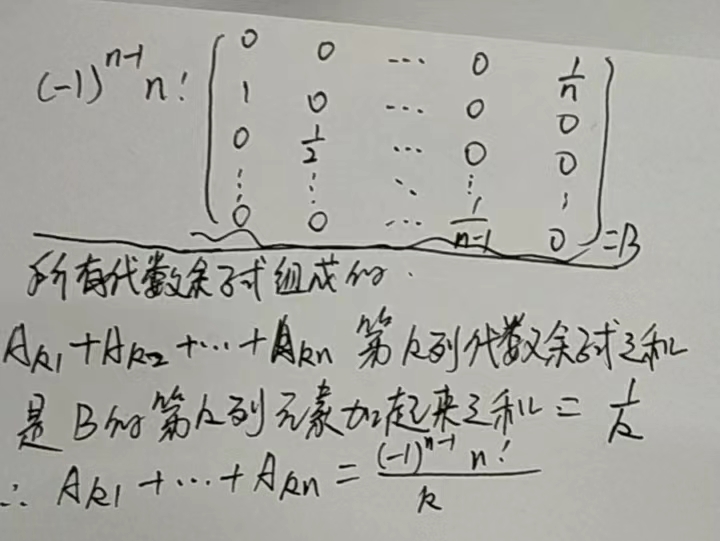 (-1)^{n-1} n! ( 0 0 … 0 1/n
1 0 … 0 0
0 1/2 … 0 0
⋮ ⋮ ⋱ ⋮ ⋮
0 0 … 1/(n-1) 0 ) = B
所有代数余子式组成的.
A_{k1}+A_{k2}+…+A_{kn} 第k列代数余子式之和
是B的第k列元素加起来之和 = 1/k
∴ A_{k1}+…+A_{kn} = (-1)^{n-1} n! / k